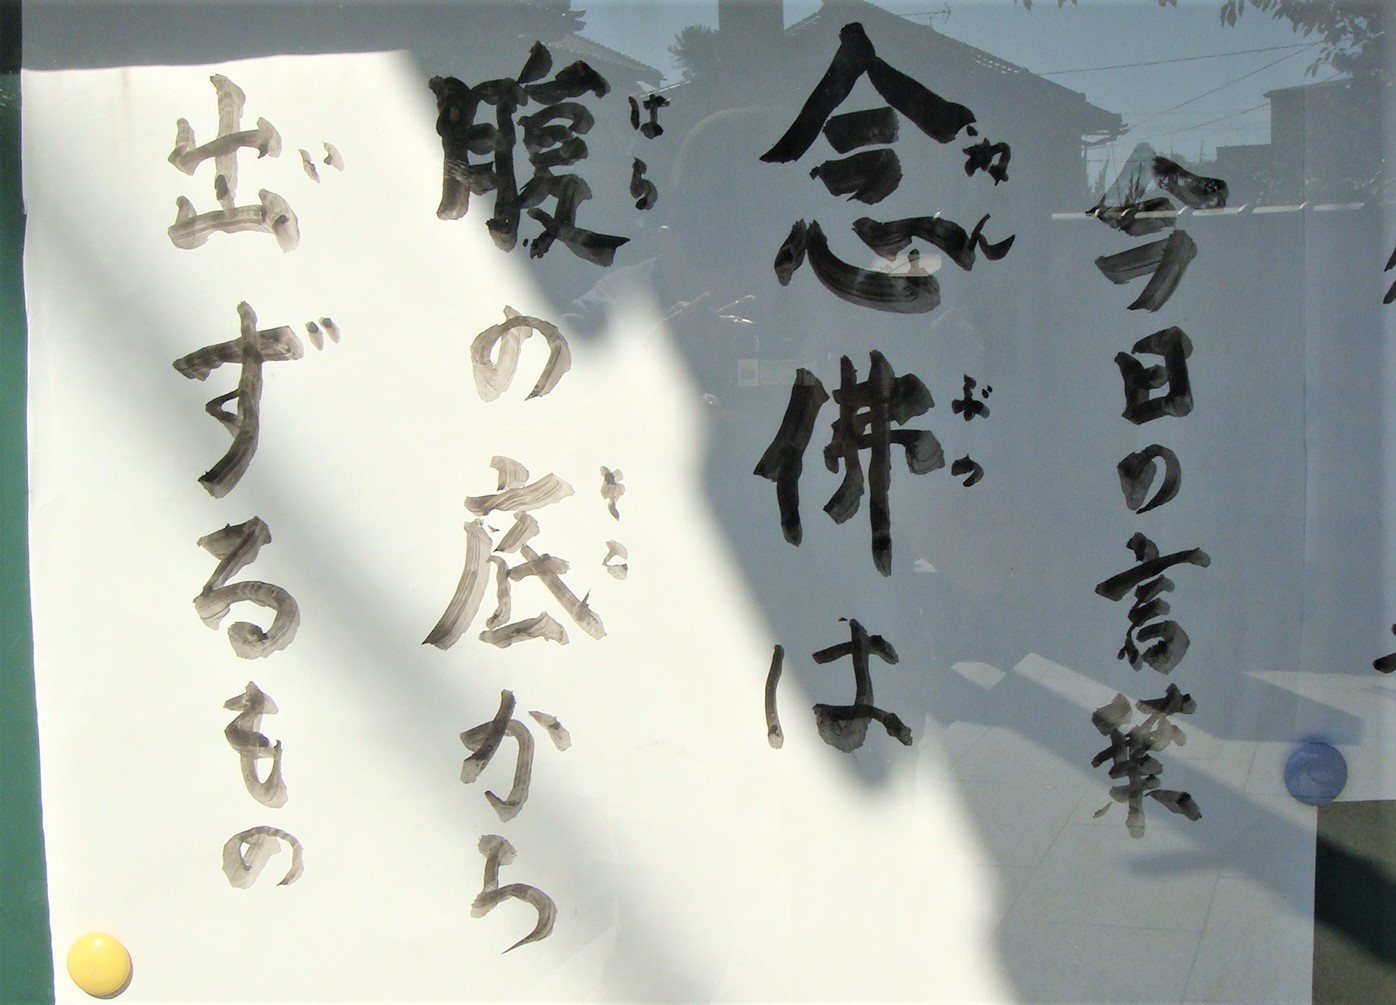 今日の言葉
念佛は
ねんぶつ
腹の底から
はらそこ
出ずるもの